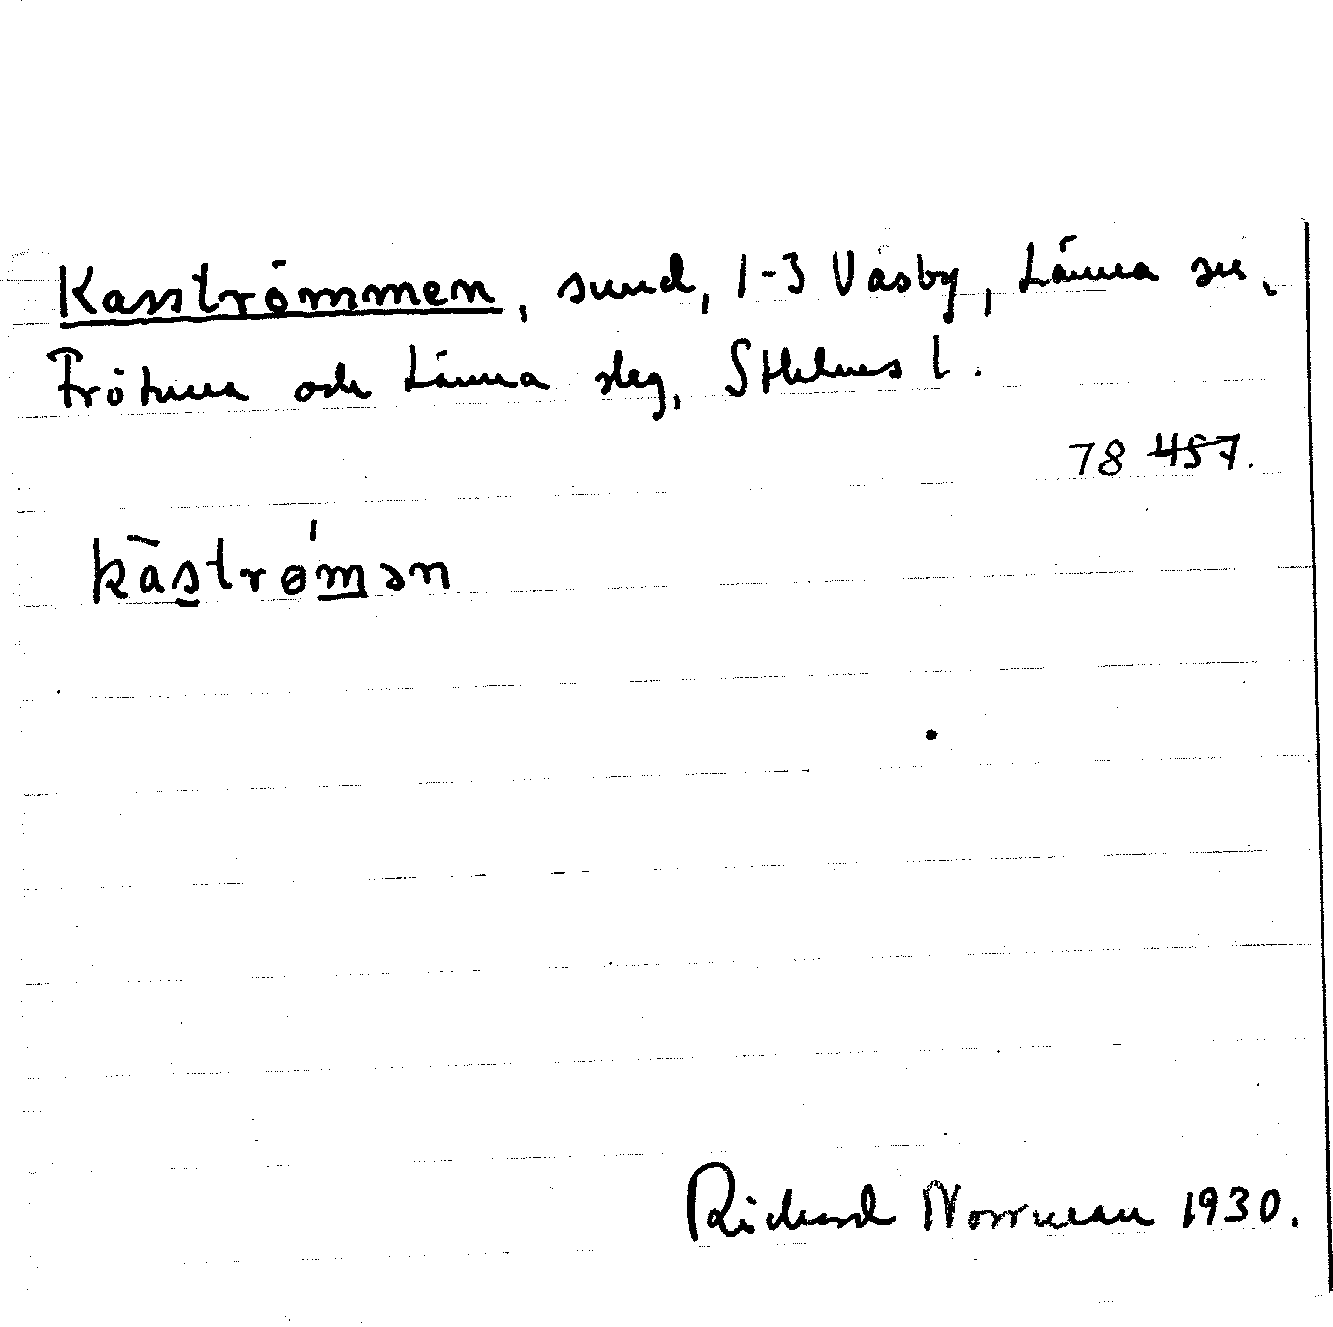 Kasströmmen, sund, 1-3 Väsby, Länna sn,
Frötuna och Länna slg, Sthlms l.
78 457.
kāstrø̄́mən
Richard Norrman 1930.